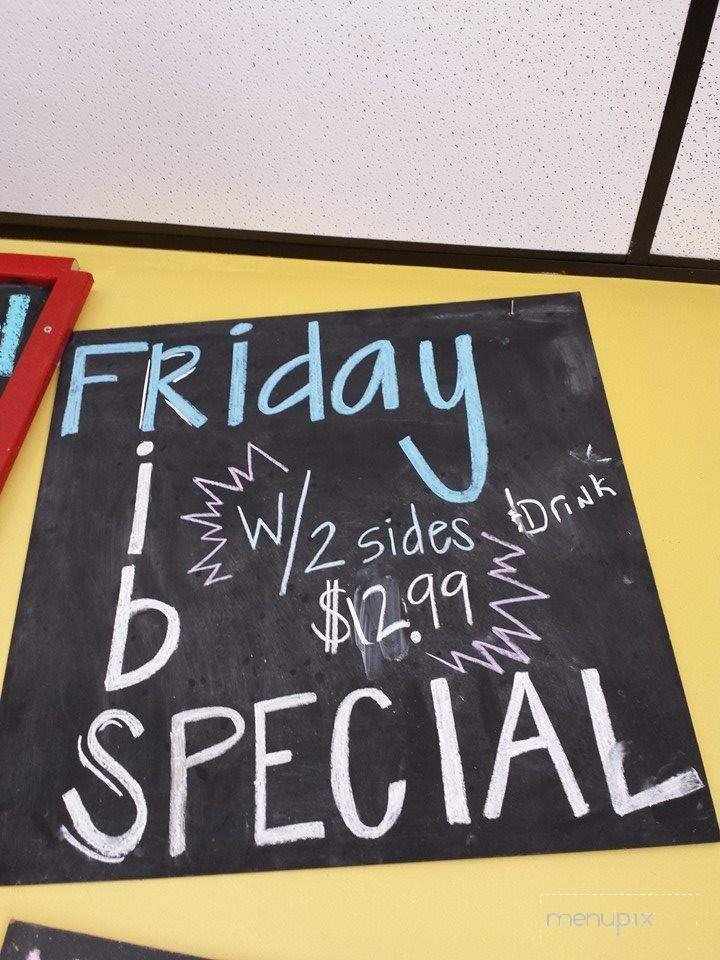 FRiday
Rib
W/2 sides
& Drink
$12.99
SPECIAL
menupix